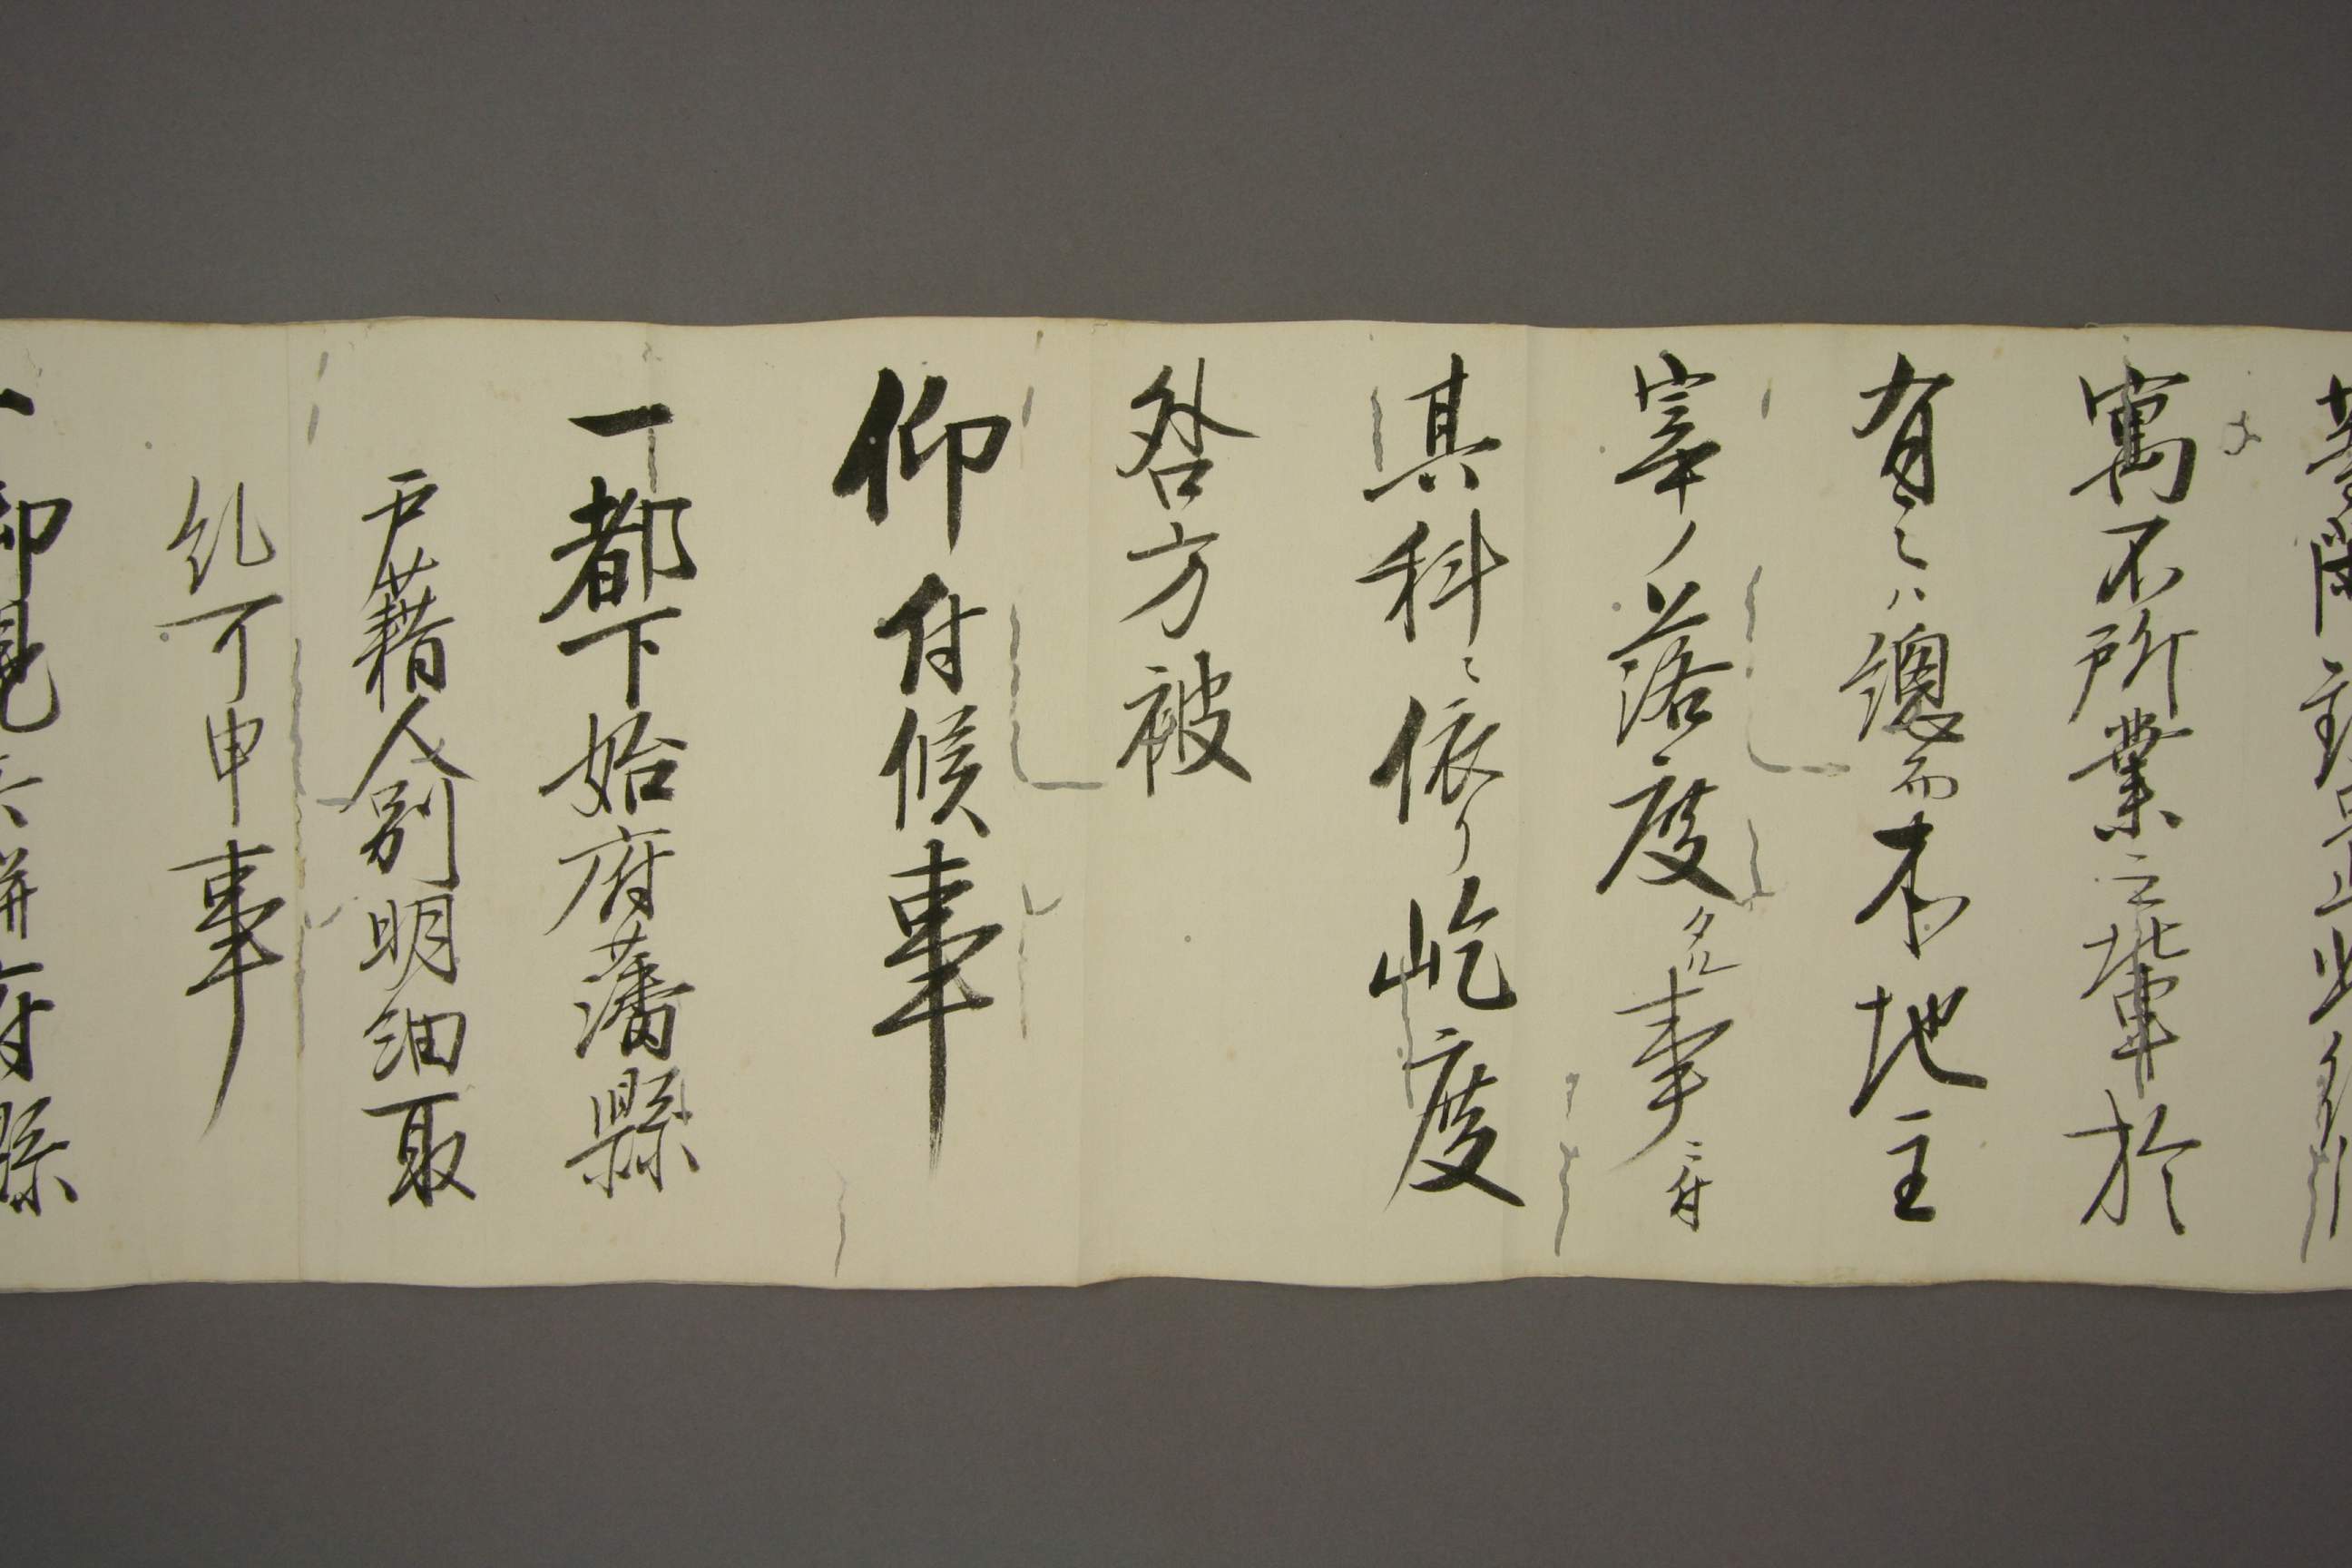 寓不所業之輩於
有之ハ總而本地主
宰ノ落度タル事ニ付
其科ニ依り屹度
咎方被
仰付候事
一都下始府藩縣
戸藉人別明細取
糺可申事